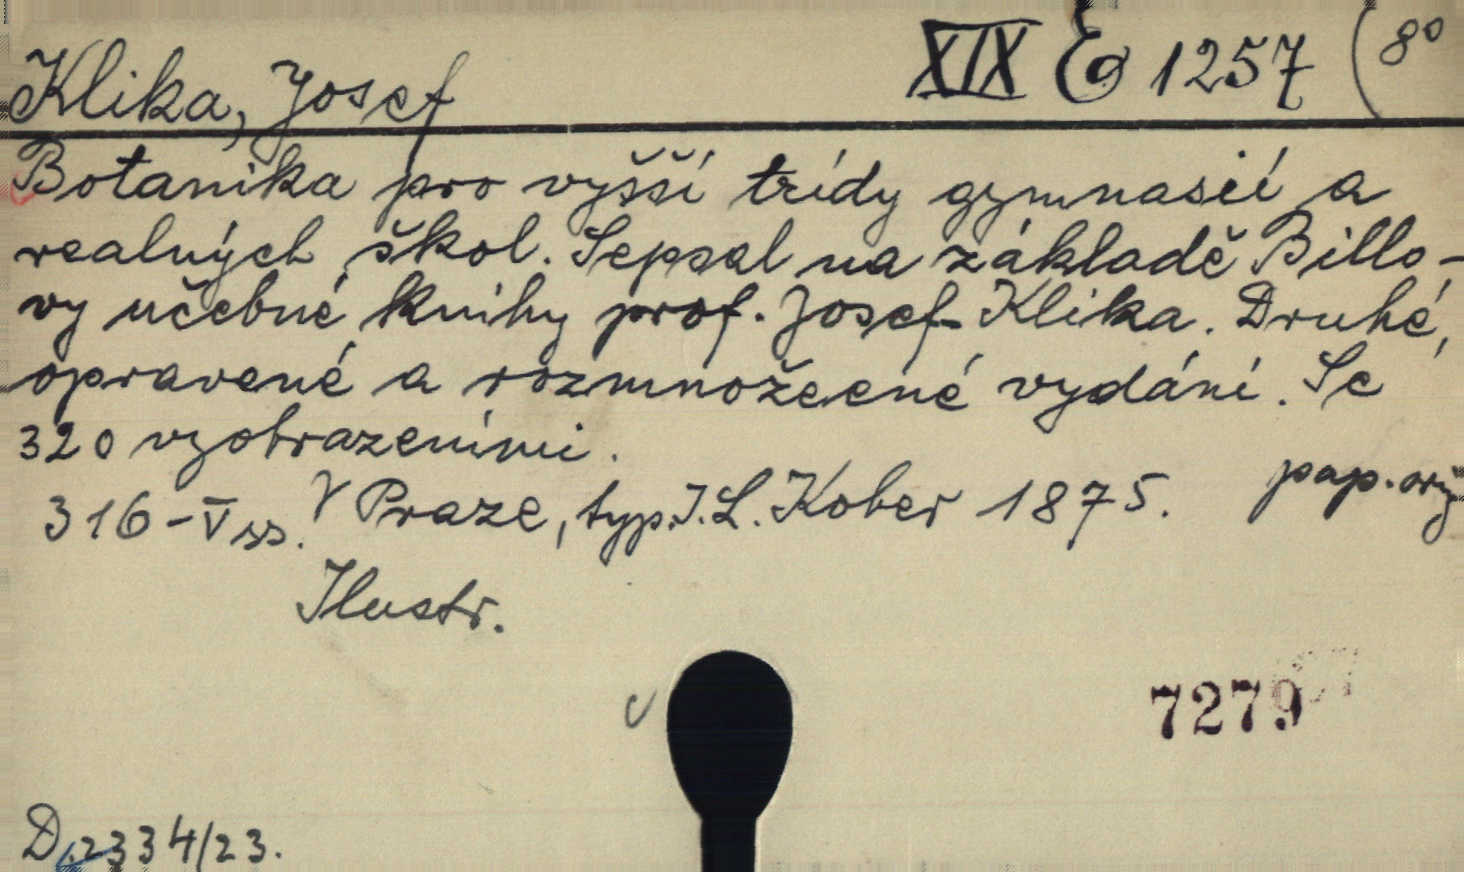 Klika, Josef XIX E 1257 (8°
Botanika pro vyšší trídy gymnasií a
realných škol. Sepsal na základě Billo-
vy učebné knihy prof. Josef Klika. Druhé,
opravené a rozmnožeené vydání. Se
320 vyobrazeními.
316-V ss. V Praze, typ. I. L. Kober 1875. pap. orig
Ilustr.
7279
D.2334/23.